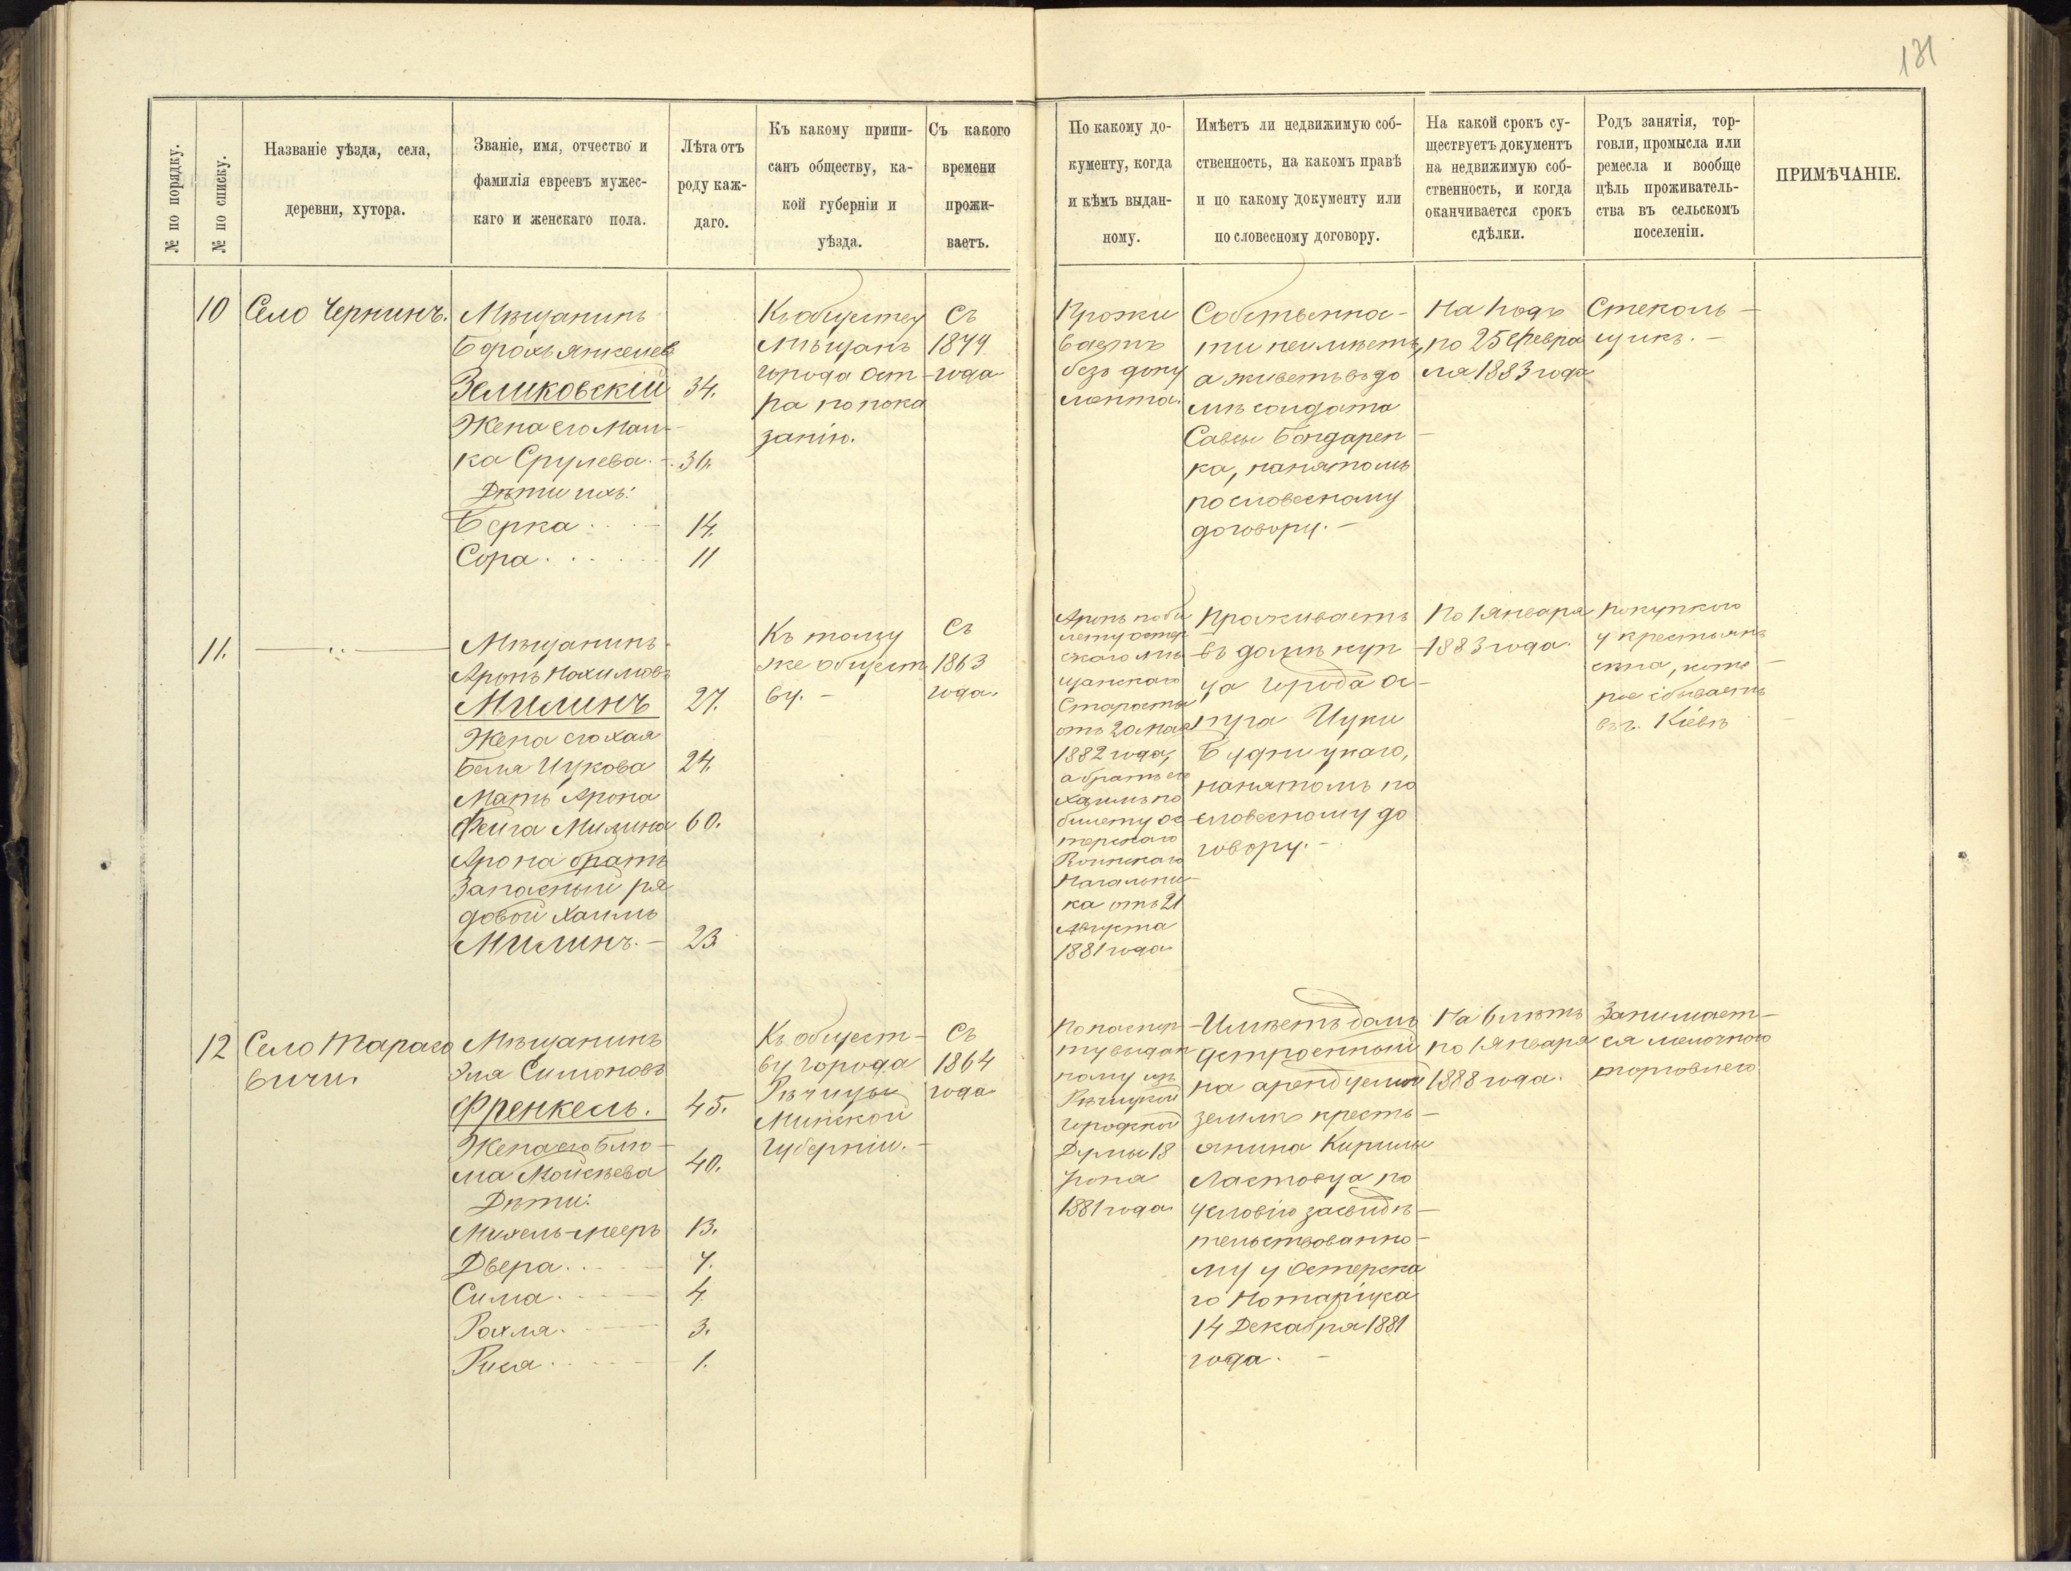 131
№ по порядку.
№ по списку.
Названіе уѣзда, села,
деревни, хутора.
Званіе, имя, отчество и
фамилія евреевъ мужес-
каго и женскаго пола.
Лѣта отъ
роду каж-
даго.
Къ какому припи-
санъ обществу, ка-
кой губерніи и
уѣзда.
Съ какого
времени
прожи-
ваетъ.
По какому до-
кументу, когда
и кѣмъ выдан-
ному.
Имѣетъ ли недвижимую соб-
ственность, на какомъ правѣ
и по какому документу или
по словесному договору.
На какой срокъ су-
ществуетъ документъ
на недвижимую соб-
ственность, и когда
оканчивается срокъ
сдѣлки.
Родъ занятія, тор-
говли, промысла или
ремесла и вообще
цѣль проживатель-
ства въ сельскомъ
поселеніи.
ПРИМѢЧАНІЕ.
10
Село Чернинъ.
Мѣщанинъ
Борохъ Янкелев
Зеликовскій 34.
Жена его Мал-
ка Срулева. 36.
Дѣти ихъ:
Берка 14.
Сора 11
Къ обществу
мѣщанъ
города Ост-
ра по пока
занію.
Съ
1874
года
Прожи
ваетъ
безъ доку
мента.
Собственнос-
ти неимѣетъ,
а живетъ въ до
мѣ солдата
Савы Бондарен-
ка, нанятомъ
по словесному
договору.
На годъ
по 25 Февра
ля 1883 года
Стеколь-
щикъ.
11.
Мѣщанинъ
Аронъ Нохимовъ
Милинъ 27.
Жена его Хая
Беля Ицкова 24.
Мать Арона
Фейга Милина 60.
Арона братъ
Запасный ря
довой Хаимъ
Милинъ. 23
Къ тому
же общест
ву.
Съ
1863
года.
Аронъ по би
лету Остер
скаго мѣ
щанскаго
Старосты
отъ 20 мая
1882 года,
а братъ его
Хаимъ по
билету Ос
терскаго
Воинскаго
Начальни-
ка отъ 21
Августа
1881 года
Проживаетъ
въ домѣ куп
ца города Ос-
тра Ицки
Будницкаго,
нанятомъ по
словесному до
говору.
По 1 Января
1883 года.
Покупкою
у крестьянъ
сѣна, кото
рое сбываетъ
въ г. Кіевѣ
12
Село Тарасо
вичи.
Мѣщанинъ
Эля Симоновъ
Френкель. 45.
Жена его Блю-
ма Мойсѣева 40.
Дѣти:
Михель-Мееръ 13.
Двера 7.
Сима 4
Рахля 3.
Рися 1.
Къ общест-
ву города
Рѣчицы
Минской
губерніи.
Съ
1864
года
По паспор
ту выдан
ному изъ
Рѣчицкой
городской
Думы 18
Іюна
1881 года
Имѣетъ домъ
устроенный
на арендуемой
землѣ кресть-
янина Кирилы
Ластовца по
условію засвидѣ-
тельствованно-
му у Остерска
го Нотаріуса
14 Декабря 1881
года.
На 6 лѣтъ
по 1 Января
1888 года.
Занимает-
ся мелочною
торговлею